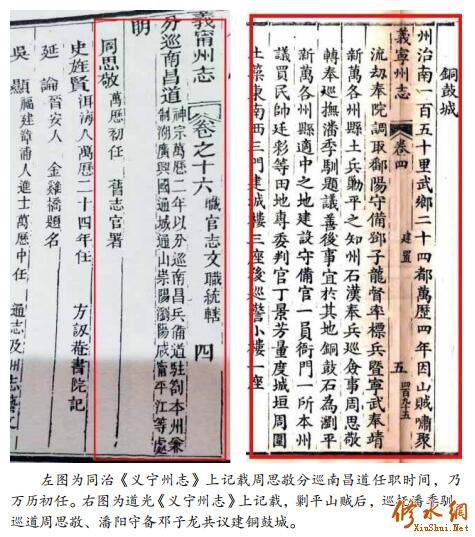 義甯州志 卷之十六 職官志文職統轄 四
分巡南昌道 神宗萬歷二年以分巡南昌兵備道駐劄本州兼
制湖廣興國通城通山崇陽瀏陽咸甯平江等處
明
周思敬 萬歷初任 舊志官署
史旌賢 洱海人萬歷二十四年任 方訒菴書院記
延論 晉安人 金雞橋題名
吳顯 福建漳浦人進士萬歷中任 通志及州志
銅鼓城
州治南一百五十里武鄉二十四都萬歷四年因山賊嘯聚
義寧州志 卷四 建置 五 四百九十五
流刼奉院調取鄱陽守備鄧子龍督率標兵暨寧武奉靖
新萬各州縣土兵勦平之知州石漢奉兵巡僉事周思敬
轉奉巡撫潘季馴題議善後事宜於其地銅鼓石為瀏平
新萬各州縣適中之地建設守備官一員衙門一所本州
議買民帥廷彩等田地專委判官丁景芳量度城垣周圍
土築東南西三門建城樓三座後巡警小樓一座
左图为同治《义宁州志》上记载周思敬分巡南昌道任职时间，乃
万历初任。右图为道光《义宁州志》上记载，剿平山贼后，巡抚潘季驯、
巡道周思敬、潘阳守备邓子龙共议建铜鼓城。
修水网
www.XiuShui.Net